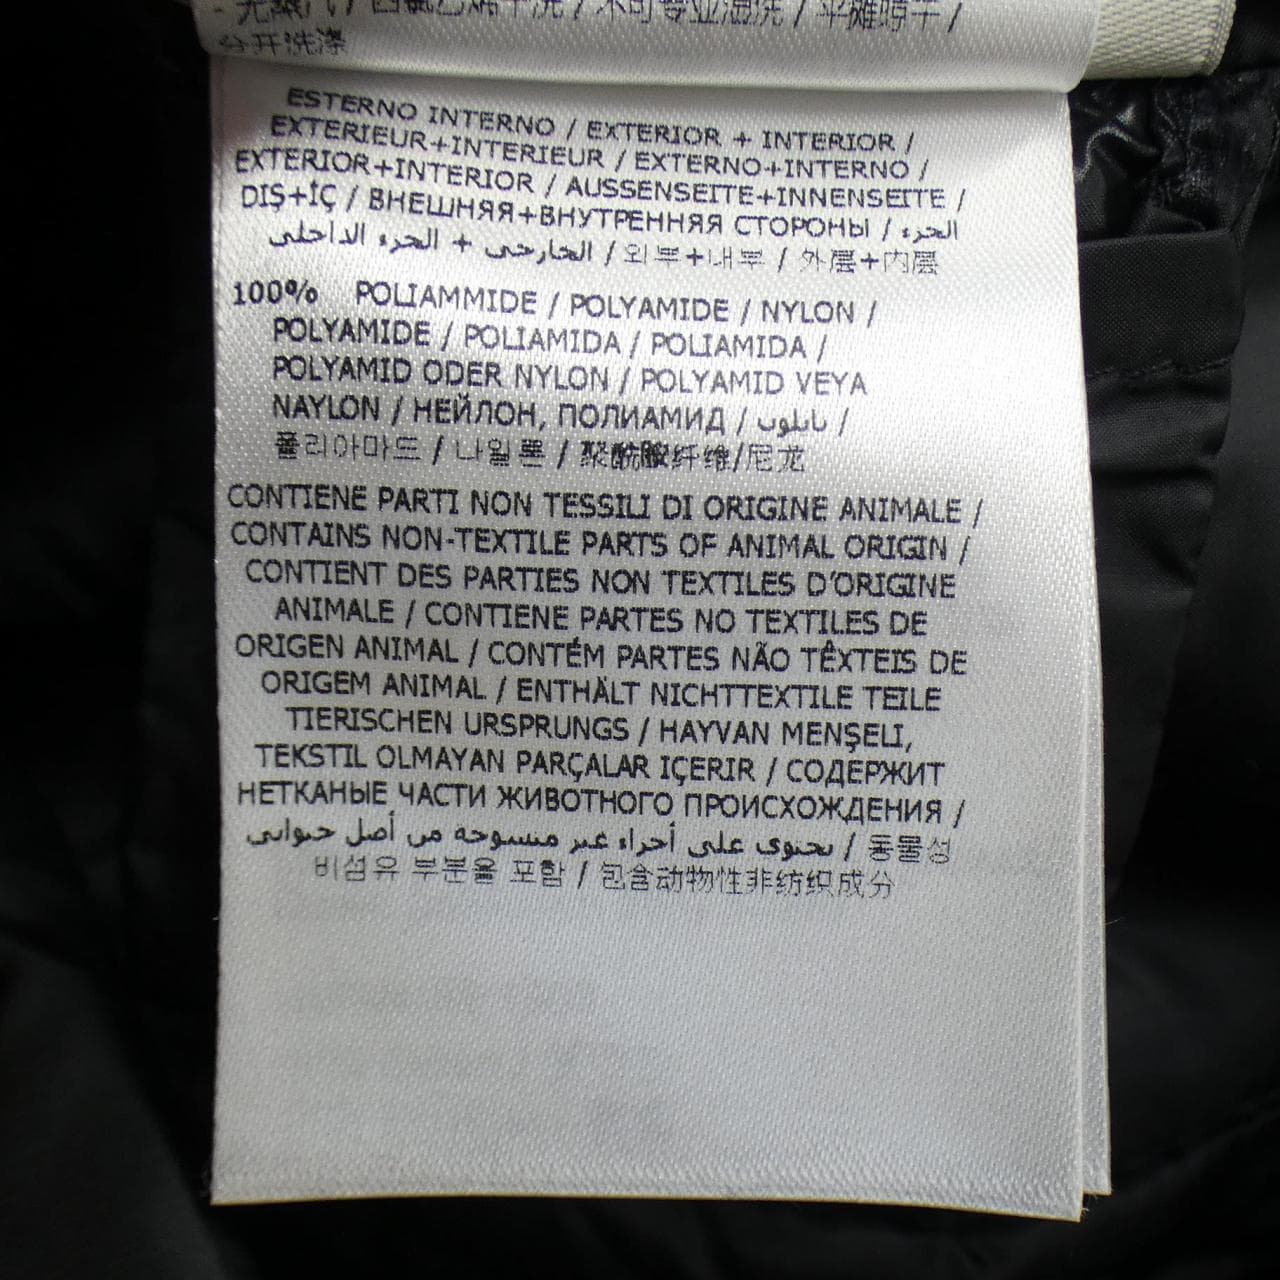 分开洗涤
ESTERNO INTERNO / EXTERIOR + INTERIOR /
EXTERIEUR+INTERIEUR / EXTERNO+INTERNO /
EXTERIOR+INTERIOR / AUSSENSEITE+INNENSEITE /
DIŞ+İÇ / ВНЕШНЯЯ+ВНУТРЕННЯЯ СТОРОНЫ / الجزء
الخارجي + الجزء الداخلي / 외부+내부 / 外层+内层
100% POLIAMMIDE / POLYAMIDE / NYLON /
POLYAMIDE / POLIAMIDA / POLIAMIDA /
POLYAMID ODER NYLON / POLYAMID VEYA
NAYLON / НЕЙЛОН, ПОЛИАМИД / نايلون /
폴리아마드 / 나일론 / 聚酰胺纤维/尼龙
CONTIENE PARTI NON TESSILI DI ORIGINE ANIMALE /
CONTAINS NON-TEXTILE PARTS OF ANIMAL ORIGIN /
CONTIENT DES PARTIES NON TEXTILES D'ORIGINE
ANIMALE / CONTIENE PARTES NO TEXTILES DE
ORIGEN ANIMAL / CONTÉM PARTES NÃO TÊXTEIS DE
ORIGEM ANIMAL / ENTHÄLT NICHTTEXTILE TEILE
TIERISCHEN URSPRUNGS / HAYVAN MENŞELİ,
TEKSTIL OLMAYAN PARÇALAR IÇERIR / СОДЕРЖИТ
НЕТКАНЫЕ ЧАСТИ ЖИВОТНОГО ПРОИСХОЖДЕНИЯ /
يحتوي على أجزاء غير منسوجة من أصل حيواني / 동물성
비섬유 부분을 포함 / 包含动物性非纺织成分